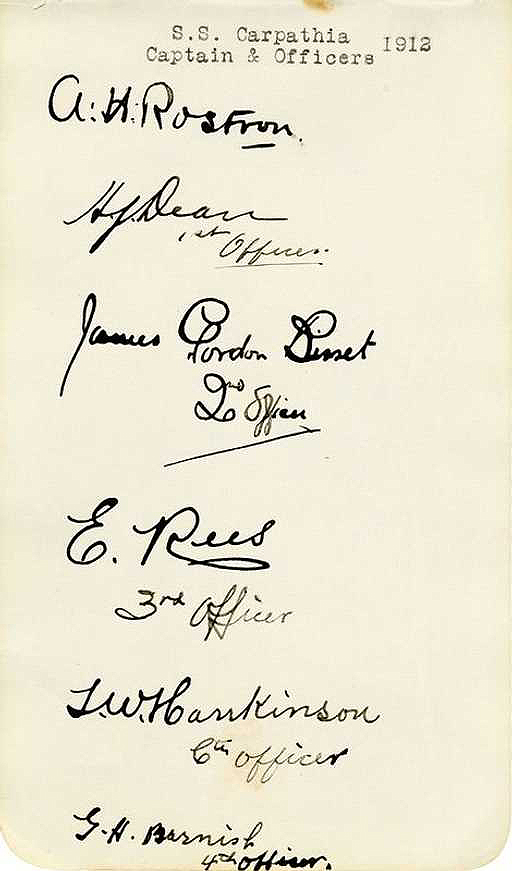 S.S. Carpathia 1912
Captain & Officers
A. H. Rostron.
H. J. Dean
1st Officer.
James Gordon Bisset
2nd Officer
E. Rees
3rd Officer
6th officer
G. H. Barnish
4th officer.